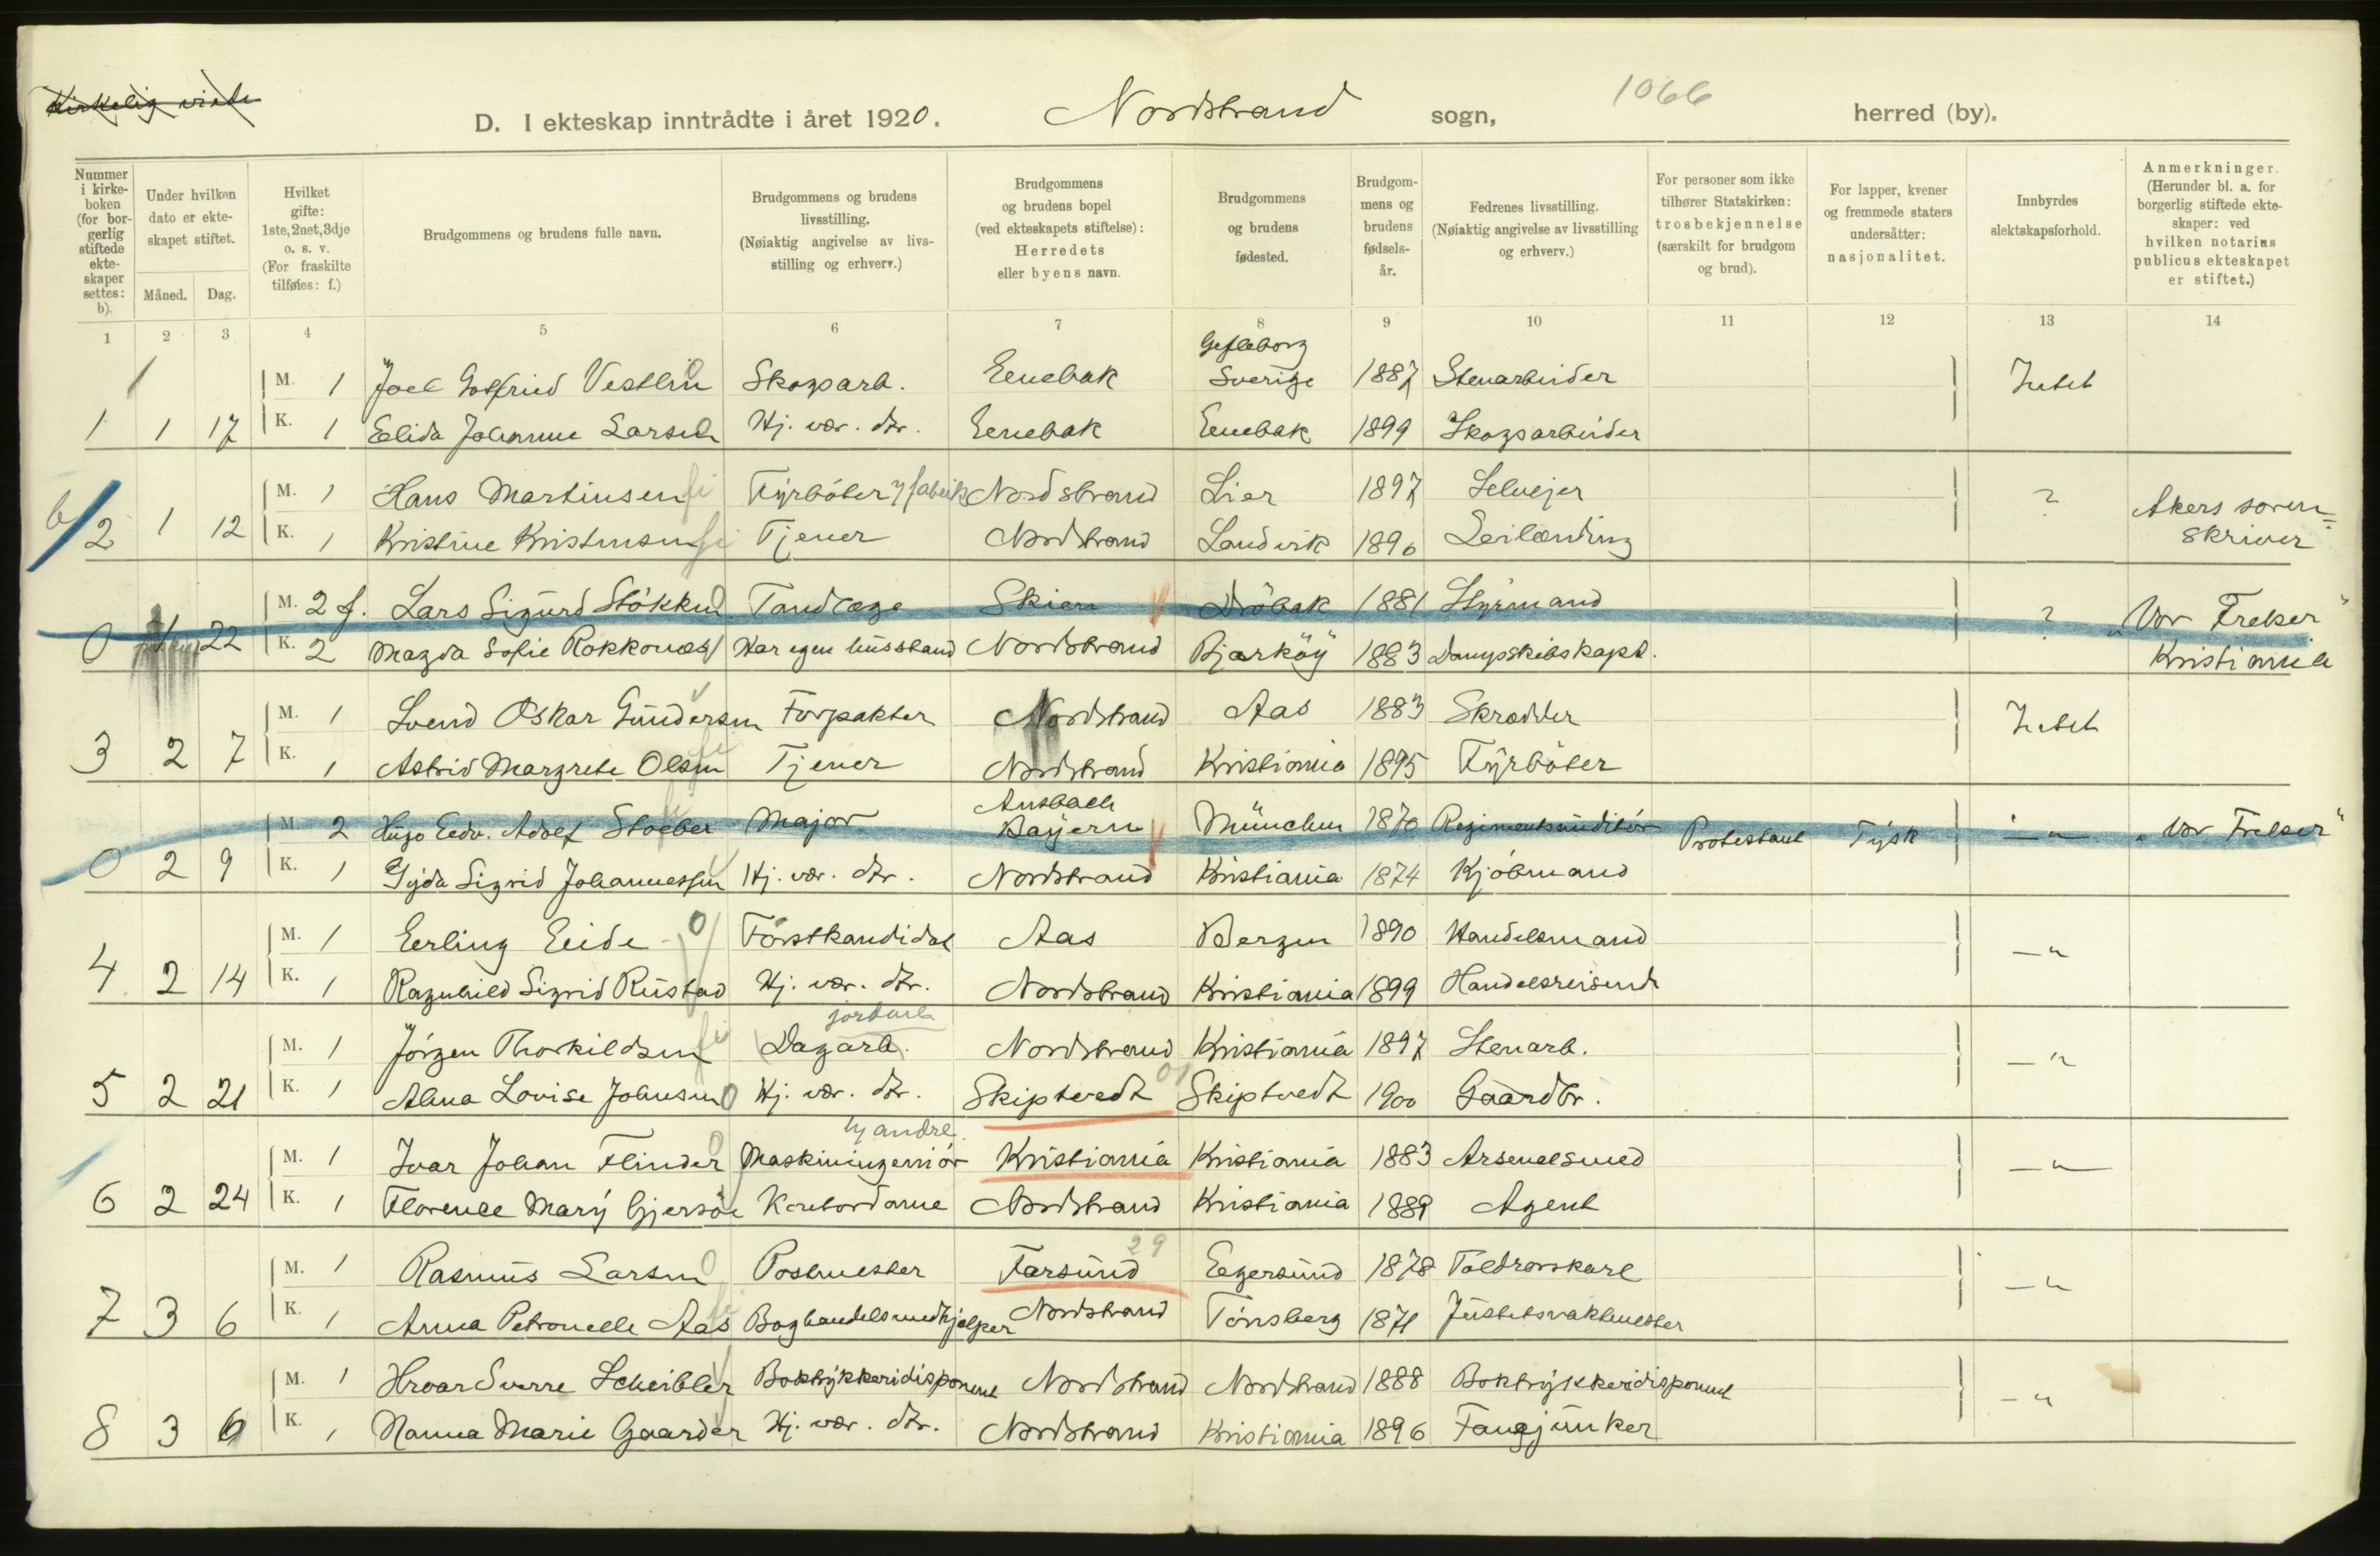 Kirkelig viede
D. I ekteskap inntrådte i året 1920. Nordstrand sogn, 1066 herred (by).
Nummer i kirke-boken (for bor-gerlig stiftede ekte-skaper settes: b).
Under hvilken dato er ekte-skapet stiftet.
Måned. Dag.
Hvilket gifte: 1ste, 2net, 3dje o. s. v. (For fraskilte tilføies: f.)
Brudgommens og brudens fulle navn.
Brudgommens og brudens livsstilling. (Nøiaktig angivelse av livs-stilling og erhverv.)
Brudgommens og brudens bopel (ved ekteskapets stiftelse): Herredets eller byens navn.
Brudgommens og brudens fødested.
Brudgom-mens og brudens fødsels-år.
Fedrenes livsstilling. (Nøiaktig angivelse av livsstilling og erhverv.)
For personer som ikke tilhører Statskirken: trosbekjennelse (særskilt for brudgom og brud).
For lapper, kvener og fremmede staters undersåtter: nasjonalitet.
Innbyrdes slektskapsforhold.
Anmerkninger. (Herunder bl. a. for borgerlig stiftede ekte-skaper: ved hvilken notarius publicus ekteskapet er stiftet.)
1 2 3 4 5 6 7 8 9 10 11 12 13 14
Gefleborg
M. 1 Joel Gotfried Vestlin Skogsarb. Enebak Sverige 1887 Stenarbeider Intet
1 1 17 K. 1 Elida Johanne Larsen Hj. vær. dtr. Enebak Enebak 1899 Skogsarbeider
b M. 1 Hans Martinsen Fyrbøter y fabrik Nordstrand Lier 1897 Selveier ? Akers soren-
2 1 12 K. 1 Kristine Kristensen Tjener Nordstrand Landvik 1896 Leilænding skriver
M. 2 f. Lars Sigurd Stökken Tandlæge Skien Dröbak 1881 Styrmand ? "Vor Frelser"
0 22 K. 2 Magda Sofie Rokkones Har egen husstand Nordstrand Bjarköy 1883 Dampskibskapt. Kristiania
M. 1 Svend Oskar Gundersen Forpakter Nordstrand Aas 1883 Skrædder Intet
3 2 7 K. 1 Astrid Margrete Olsen Tjener Nordstrand Kristiania 1895 Fyrbøter
Ansbach
M. 2 Hugo Edv. Adolf Stoeber Major Bayern München 1870 Regimentsauditör Protestant Tysk — " — "Vor Frelser"
0 2 9 K. 1 Gyda Sigrid Johannessen Hj. vær. dtr. Nordstrand Kristiania 1874 Kjöbmand
M. 1 Erling Eide Forstkandidat Aas Bergen 1890 Handelsmand — "
4 2 14 K. 1 Ragnhild Sigrid Rustad Hj. vær. dtr. Nordstrand Kristiania 1899 Handelsreisende
jordarb
M. 1 Jörgen Thorkildsen Dagarb. Nordstrand Kristiania 1897 Stenarb. — "
5 2 21 K. 1 Alma Lovise Johnsen Hj. vær. dtr. Skiptvedt 01 Skiptvedt 1900 Gaardbr.
hj andre.
M. 1 Ivar Johan Flinder Maskiningeniör Kristiania Kristiania 1883 Arsenalsmed — " —
6 2 24 K. 1 Florence Mary Gjersöe Kontordame Nordstrand Kristiania 1889 Agent
29
M. 1 Rasmus Larsen Postmester Farsund Egersund 1878 Toldrorskarl — "
7 3 6 K. 1 Anna Petronelle Aas Boghandelsmedhjelper Nordstrand Tönsberg 1871 Justitsvaktmester
M. 1 Hroar Sverre Scheibler Boktrykkeridisponent Nordstrand Nordstrand 1888 Boktrykkeridisponent — "
8 3 6 K. 1 Nanna Marie Gaarder Hj. vær. dtr. Nordstrand Kristiania 1896 Fangjunker